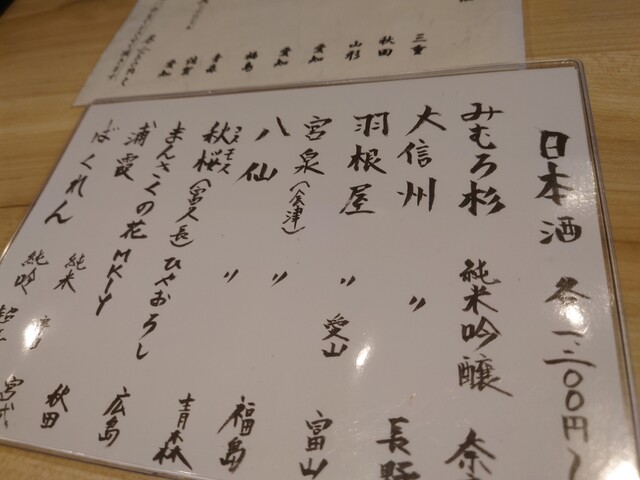 三重
秋田
山形
愛知
愛知
福島
愛知
青森
佐賀
愛知
日本酒 各一、三〇〇円〜
みむろ杉 純米吟醸 奈
大信州 〃 長野
羽根屋 〃 愛山 富山
宮泉(會津) 〃 福島
八仙 〃 青森
コスモス
秋桜(宮久 長) ひやおろし 広島
まんさくの花 MK-Y 純米 秋田
浦霞 純吟 宮城
ばくれん